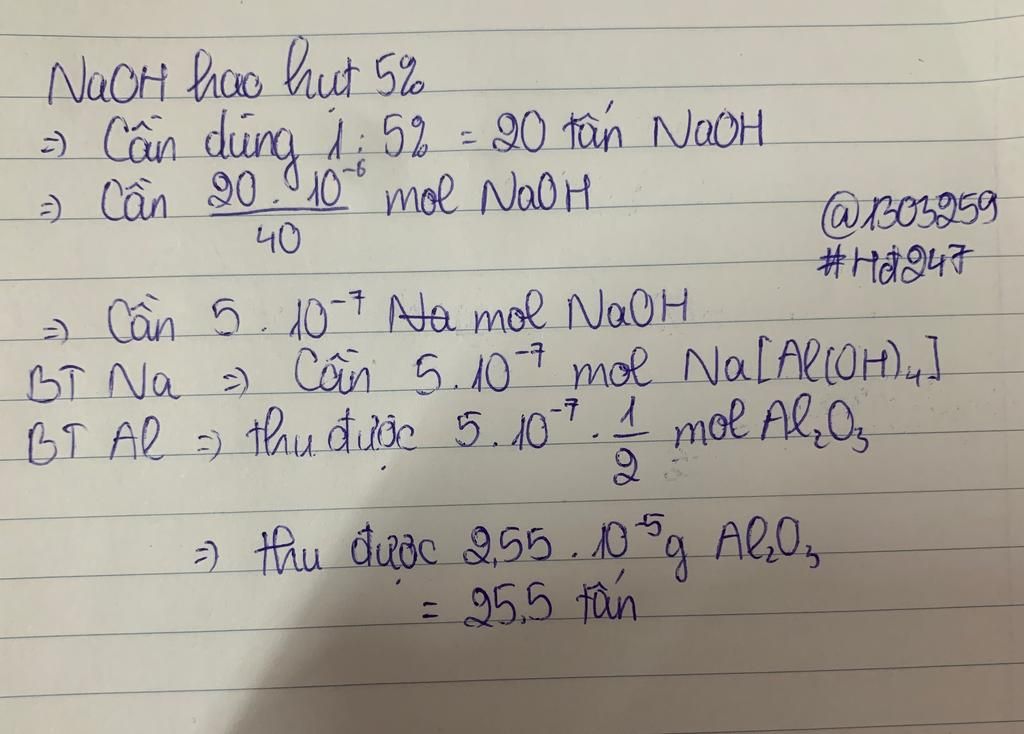 NaOH hao hụt 5%
⇒ Cần dùng 1 : 5% = 20 tấn NaOH
⇒ Cần \frac{20 . 10^{-6}}{40} mol NaOH
@1303259
#Hđ247
⇒ Cần 5 . 10^{-7} ~~Na~~ mol NaOH
BT Na ⇒ Cần 5.10^{-7} mol Na[Al(OH)_4]
BT Al ⇒ thu được 5.10^{-7} . \frac{1}{2} mol Al_2O_3
⇒ thu được 2,55 . 10^{-5}g Al_2O_3
= 25,5 tấn